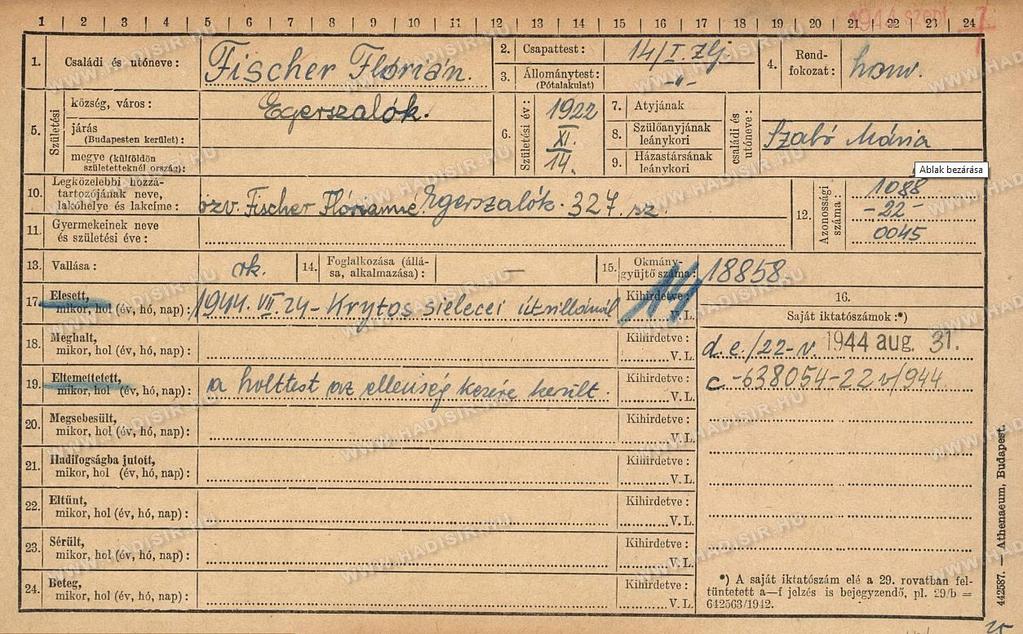 1 2 3 4 5 6 7 8 9 10 11 12 13 14 15 16 17 18 19 20 21 22 23 24
1944 szept 7
1. Családi és utóneve: Fischer Flórián.
2. Csapattest: 14/I. zlj.
3. Állománytest: (Pótalakulat) -"-
4. Rendfokozat: honv.
5. Születési
község, város: Egerszalók.
járás (Budapesten kerület):
megye (külföldön születetteknél ország):
6. Születési év: 1922 XI. 14.
7. Atyjának
8. Szülőanyjának leánykori
9. Házastársának leánykori
családi és utóneve:
Szabó Mária
Ablak bezárása
10. Legközelebbi hozzátartozójának neve, lakóhelye és lakcíme: özv. Fischer Flóriánné Egerszalók. 327. sz.
11. Gyermekeinek neve és születési éve:
12. Azonossági száma: 1088 -22- 0045
13. Vallása: rk.
14. Foglalkozása (állása, alkalmazása): —
15. Okmánygyüjtő száma: 18858
16. Saját iktatószámok:*)
d.e./22-v. 1944 aug. 31.
c.-638054-22v/944
17. Elesett, mikor, hol (év, hó, nap): 1944. VII. 24- Krytos sielecei útzillánál
Kihirdetve: V. L.
18. Meghalt, mikor, hol (év, hó, nap):
Kihirdetve: V. L.
19. Eltemettetett, mikor, hol (év, hó, nap): a holttest az ellenség kezére került.
Kihirdetve: V. L.
20. Megsebesült, mikor, hol (év, hó, nap):
Kihirdetve: V. L.
21. Hadifogságba jutott, mikor, hol (év, hó, nap):
Kihirdetve: V. L.
22. Eltünt, mikor, hol (év, hó, nap):
Kihirdetve: V. L.
23. Sérült, mikor, hol (év, hó, nap):
Kihirdetve: V. L.
24. Beteg, mikor, hol (év, hó, nap):
Kihirdetve: V. L.
*) A saját iktatószám elé a 29. rovatban feltüntetett a—f jelzés is bejegyzendő, pl. 29/b = 642563/1942.
442587. — Athenaeum, Budapest.
WWW.HADISIR.HU